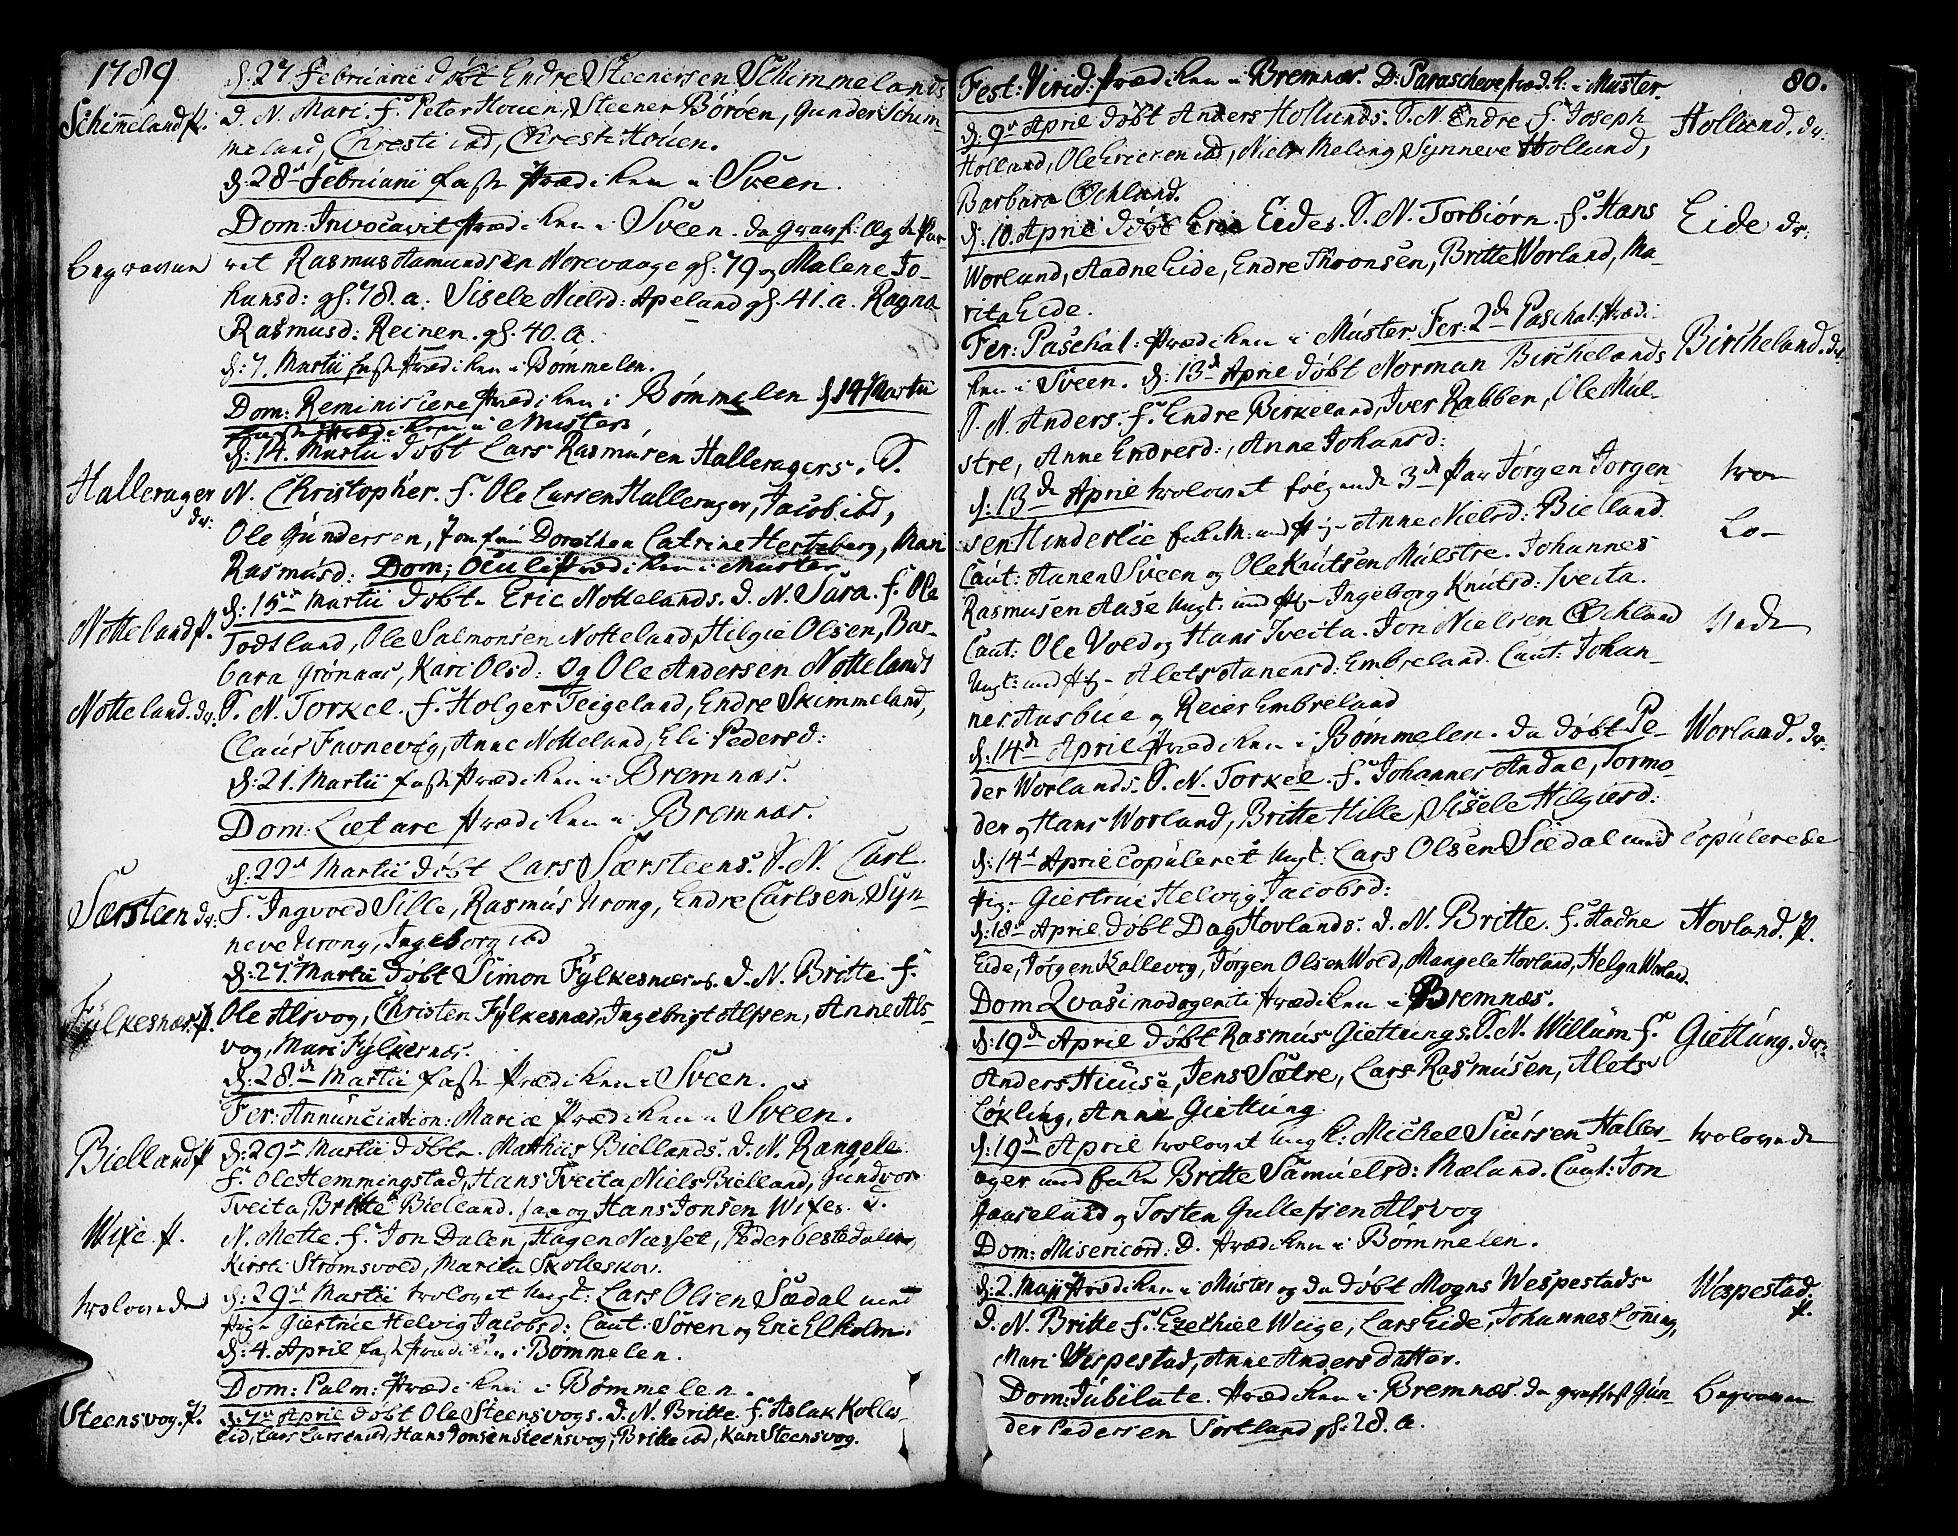 1789
d. 27 Februarii døbt Endre Steenersen Schimmelands
Schimeland p.
D. N. Mari. f. Peter Houen, Steener Børøen, Gunder Schim-
meland, Christi ibd, Christi Houen.
d. 28 Februarii faste Prædiken i Sveen.
Dom: Invocavit Prædiken i Sveen. da Grav
begraven
Rasmus Aamundsen Norevaage gl: 79 og Malene Jo-
hansd: gl. 78. a. Sisele Nielsd: Apeland gl. 41. a. Ragna
Rasmusd: Reinen. gl. 40. a.
d: 7. Martii faste Prædiken i Bømmelen.
Dom: Reminiscere Prædiken i Bømmelen d 14 Martii
faste Prædiken i Muster
d. 14. Martii døbt Lars Rasmusen Halleragers. D.
Hallerager dr:
N. Christopher. f. Ole Larsen Hallerager, Jacob ibd,
Ole Gundersen, Jomfru Dorothea Catrine Hertzberg, Mari
Rasmusd: Dom: Oculi Prædiken i Muster
d: 15 Martii døbt Eric Nottelands. D. N. Sara. f. Ole
Notteland p.
Todtland, Ole Salmonsen Notteland, Hilgie Olsen, Bar-
bara Grønaas, Kari Olsd: Og Ole Andersen Nottelands
Notteland. dr.
D. N. Torkel. f. Holger Teigeland, Endre Skimmeland,
Claus Favnevig, Anne Notteland, Eli Pedersd:
d: 21. Martii faste Prædiken i Bremnæs.
Dom: Lætare Prædiken i Bremnæs.
d. 22 Martii døbt Lars Særsteens. D. N. Carl
Særsteen dr:
f. Ingvoed Sille, Rasmus Urong, Endre Carlsen, Syn-
neve Urong, Ingeborg ibd
d: 27. Martii døbt Simon Fylkesnæs. D. N. Britte f.
Fylkesnæs. p.
Ole Alsvog, Christen Fylkesnæs, Ingebrigt Alsen, Anne Als-
vog, Mari Fylkesnæs.
d: 28. Martii faste Prædiken i Sveen.
Fer: Annunciation: Mariæ Prædiken i Sveen.
Bielland p
d: 29 Martii døbt Mathiis Biellands. D. N. Rangele
f. Ole Hemmingstad, Hans Tveita, Niels Bielland, Gundvor
Tveita, Britte Bielland. Saa og Hans Jonsen Wixes. D.
Wixe. p.
N. Mette. f. Jon Dalen, Hagen Næsset, Peder bestedalen,
Kirsti Strømsvoed, Marita Skolleskov.
trolovede
d: 29 Martii trolovet Ungk: Lars Olsen Sædal med
Pig- Giertrue Helvig Jacobsd: Caut: Soren og Eric Elholm.
d: 4. April faste Prædiken i Bømmelen.
Dom: Palm: Prædiken i Bømmelen.
Steensvog. p.
d: 7 April døbt Ole Steensvogs. D. N. Britte f. Aslak Kolles-
eid, Lars Larsen ibd, Hans Jonsen Steensvog, Britte ibd, Kari Steensvog.
80.
Fest: Virid: Prædiken i Bremnæs. D: Parascheve præd.k: i Muster.
d. 9 April døbt Anders Hollunds. D. N. Endre f. Joseph
Hollund. dr:
Hollund, Ole Ericsen ibd, Niels Meling, Synneve Hollund,
Barbara Øchland.
d: 10. April døbt Eric Eides. D. N. Torbiørn. f. Hans
Eide dr:
Worland, Aadne Eide, Endre Thronsen, Britte Worland, Ma-
rita Eide.
Fer: Paschal: Prædiken i Muster. Fer: 2 Paschal: Prædi-
ken i Sveen. d: 13 April døbt Norman Birchelands
Bircheland. dr.
D. N. Anders. f. Endre Birkeland, Iver Rabben, Ole Mül-
stre, Anne Endresd:, Anne Johansd:
d: 13 April trolovet følgende 3 Par Jørgen Jørgen-
tro-
sen Hinderlie Enkem: med Pig- Anne Nielsd: Bielland
lo-
Caut: Aanen Sveen og Ole Knutsen Mülstre. Johannes
Rasmusen Aase Ungk: med Pig- Ingeborg Knutsd: Tveita.
vede
Caut: Ole Voed og Hans Tveita. Jon Nielsen Øchland
Ungk: med Pig- Alets Aanensd: Embreland. Caut: Johan-
nes Aasbue og Reier Embreland
d: 14 April Prædiken i Bømmelen. da døbt Pe-
Worland. dr.
der Worlands. D. N. Torkel. f. Johannes Andal, Tormo-
den og Hans Worland, Britte Hille, Sisele Hilgiesd:
d: 14 April Copuleret Ungk: Lars Olsen Sædal med
Copulerede
Pig- Giertrue Helvig Jacobsd:
d: 18 April døbt Dag Hovlands. D. N. Britte. f. Aadne
Hovland. p.
Eide, Jørgen Kallevog, Jørgen Olsen Woed, Mangele Hovland, Helga Worland.
Dom Qvasimodogeniti Prædiken i Bremnæs.
d: 19 April døbt Rasmus Giettungs. D. N. Willum f.
Giettung. dr.
Anders Huuse, Jens Sætre, Lars Rasmusen, Alets
Løkling, Anne Giettung
d: 19 April trolovet Ungk: Michel Siursen Haller-
trolovede
ager med Enke Britte Samuelsd: Mæland. Caut: Jon
Gaaseland og Tosten Gullessen Alsvog
Dom: Misericord: D. Prædiken i Bømmelen.
d: 2. Maji Prædiken i Muster og da døbt Mogns Wespestads
Wespestad. p.
D. N. Britte f. Ezechiel Weige, Lars Eide, Johannes Løning,
Mari Wespestad, Anne Andersdatter.
Dom: Jubilate. Prædiken i Bremnæs da grafæst Gun-
begraven
der Pedersen Sortland gl: 28. a.